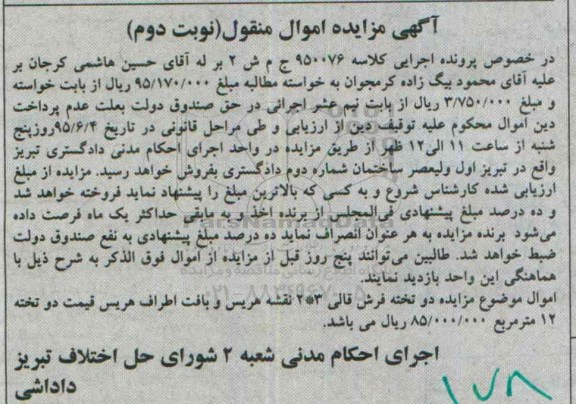 آگهی مزایده اموال منقول(نوبت دوم)
در خصوص پرونده اجرایی کلاسه ۹۵۰۰۷۶ ج م ش ۲ بر له آقای حسین هاشمی کرجان بر
علیه آقای محمود بیگ زاده کرمجوان به خواسته مطالبه مبلغ ۹۵/۱۷۰/۰۰۰ ریال از بابت خواسته
و مبلغ ۳/۷۵۰/۰۰۰ ریال از بابت نیم عشر اجرائی در حق صندوق دولت بعلت عدم پرداخت
دین اموال محکوم علیه توقیف دین از ارزیابی و طی مراحل قانونی در تاریخ ۹۵/۶/۴روزپنج
شنبه از ساعت ۱۱ الی۱۲ ظهر از طریق مزایده در واحد اجرای احکام مدنی دادگستری تبریز
واقع در تبریز اول ولیعصر ساختمان شماره دوم دادگستری بفروش خواهد رسید. مزایده از مبلغ
ارزیابی شده کارشناس شروع و به کسی که بالاترین مبلغ را پیشنهاد نماید فروخته خواهد شد
و ده درصد مبلغ پیشنهادی فی‌المجلس از برنده اخذ و به مابقی حداکثر یک ماه فرصت داده
می‌شود برنده مزایده به هر عنوان انصراف نماید ده درصد مبلغ پیشنهادی به نفع صندوق دولت
ضبط خواهد شد. طالبین می‌توانند پنج روز قبل از مزایده از اموال فوق الذکر به شرح ذیل با
هماهنگی این واحد بازدید نمایند.
اموال موضوع مزایده دو تخته فرش قالی ۳*۲ نقشه هریس و بافت اطراف هریس قیمت دو تخته
۱۲ مترمربع ۸۵/۰۰۰/۰۰۰ ریال می باشد.
اجرای احکام مدنی شعبه ۲ شورای حل اختلاف تبریز
داداشی
۱۷۸